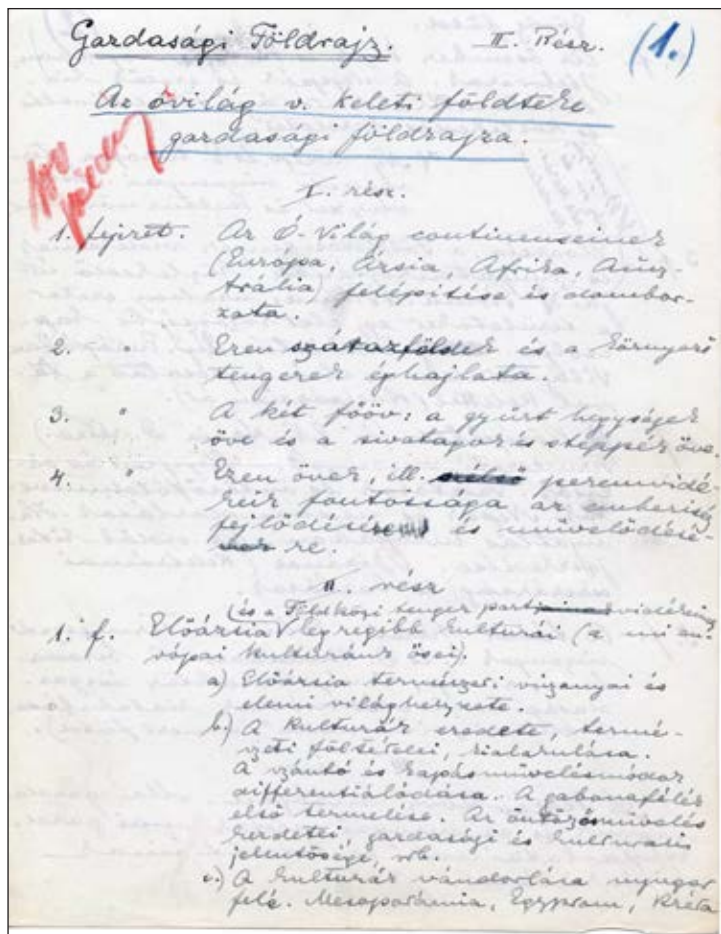 Gazdasági Földrajz. II. Rész. (1.)
Az óvilág v. keleti földteke
gazdasági földrajza.
I. rész.
1. fejezet. Az Ó-Világ continenseinek
(Európa, Ázsia, Afrika, Ausz-
trália) felépítése és dombor-
zata.
2. " Ezen szárazföldek és a környező
tengerek éghajlata.
3. " A két főöv: a gyűrt hegységek
öve és a sivatagok és steppék öve.
4. " Ezen övek, ill. peremvidé-
keik fontossága az emberiség
fejlődésére és művelődésé-
re.
II. rész
(és a Földközi tenger part vidékeinek
1. f. Előázsia legrégibb kulturái (a mi eu-
rópai kulturánk ősei).
a) Előázsia természeti viszonyai és
elemi világhelyzete.
b.) A kulturák eredete, termé-
szeti föltételei, kialakulása.
A szántó és kapásművelésmódok
differentiálódása. A gabonafélék
első termelése. Az öntözésművelés
kezdetei, gazdasági és kulturális
jelentősége, stb.
c.) A kulturák vándorlása nyugat
felé. Mesopotámia, Egyptom, Kréta